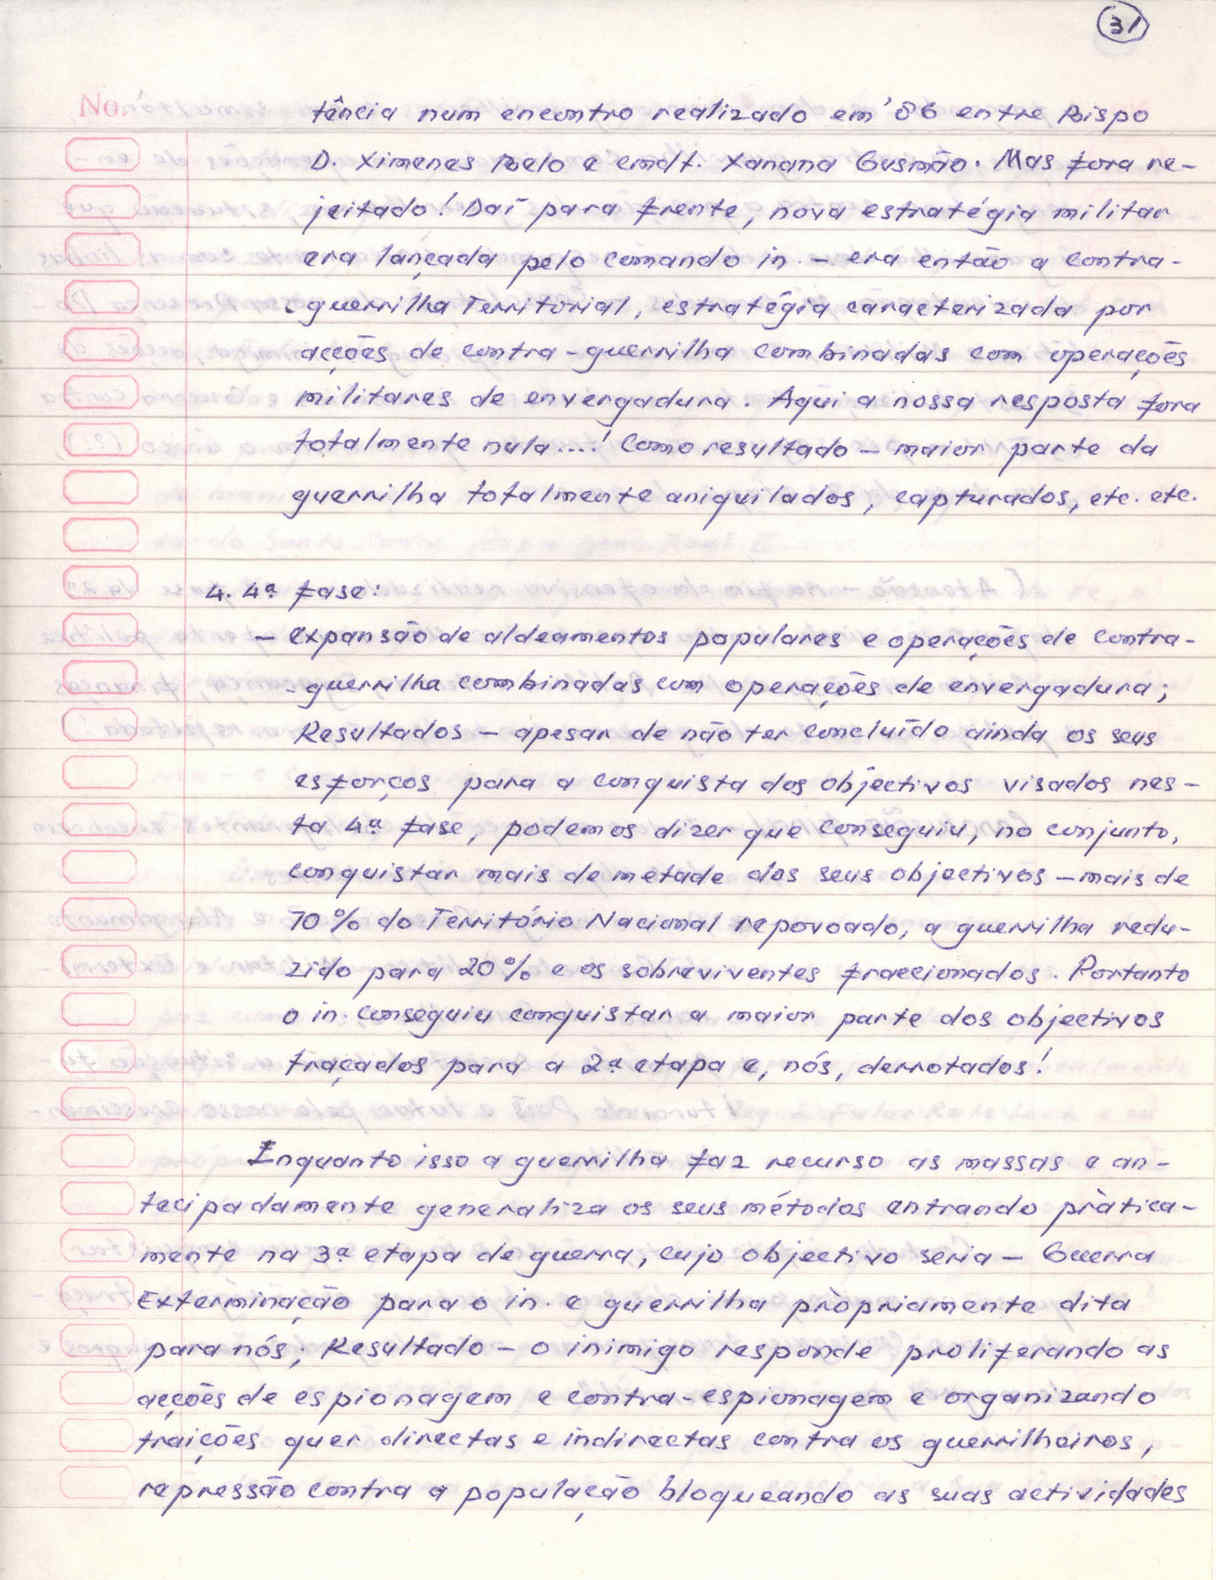 31
No.
tência num encontro realizado em '86 entre Bispo
D. Ximenes Belo e cmdt. Xanana Gusmão. Mas fora re-
jeitado! Daí para frente, nova estratégia militar
era lançada pelo comando in. - era então a contra-
-guerrilha Territorial, estratégia caracterizada por
acções de contra-guerrilha combinadas com operações
militares de envergadura. Aqui a nossa resposta fora
totalmente nula...! Como resultado - maior parte da
guerrilha totalmente aniquilados, capturados, etc. etc.
4. 4ª fase:
- expansão de aldeamentos populares e operações de contra-
-guerrilha combinadas com operações de envergadura;
Resultados - apesar de não ter concluído ainda os seus
esforços para a conquista dos objectivos visados nes-
ta 4ª fase, podemos dizer que conseguiu, no conjunto,
conquistar mais de metade dos seus objectivos - mais de
70% do Território Nacional repovoado, a guerrilha redu-
zido para 20% e os sobreviventes fraccionados. Portanto
o in. conseguiu conquistar a maior parte dos objectivos
traçados para a 2ª etapa e, nós, derrotados!
Enquanto isso a guerrilha faz recurso as massas e an-
tecipadamente generaliza os seus métodos entrando pràtica-
mente na 3ª etapa de guerra, cujo objectivo seria - Guerra
Exterminação para o in. e guerrilha pròpriamente dita
para nós; Resultado - o inimigo responde proliferando as
acções de espionagem e contra-espionagem e organizando
traições quer directas e indirectas contra os guerrilheiros,
repressão contra a população bloqueando as suas actividades